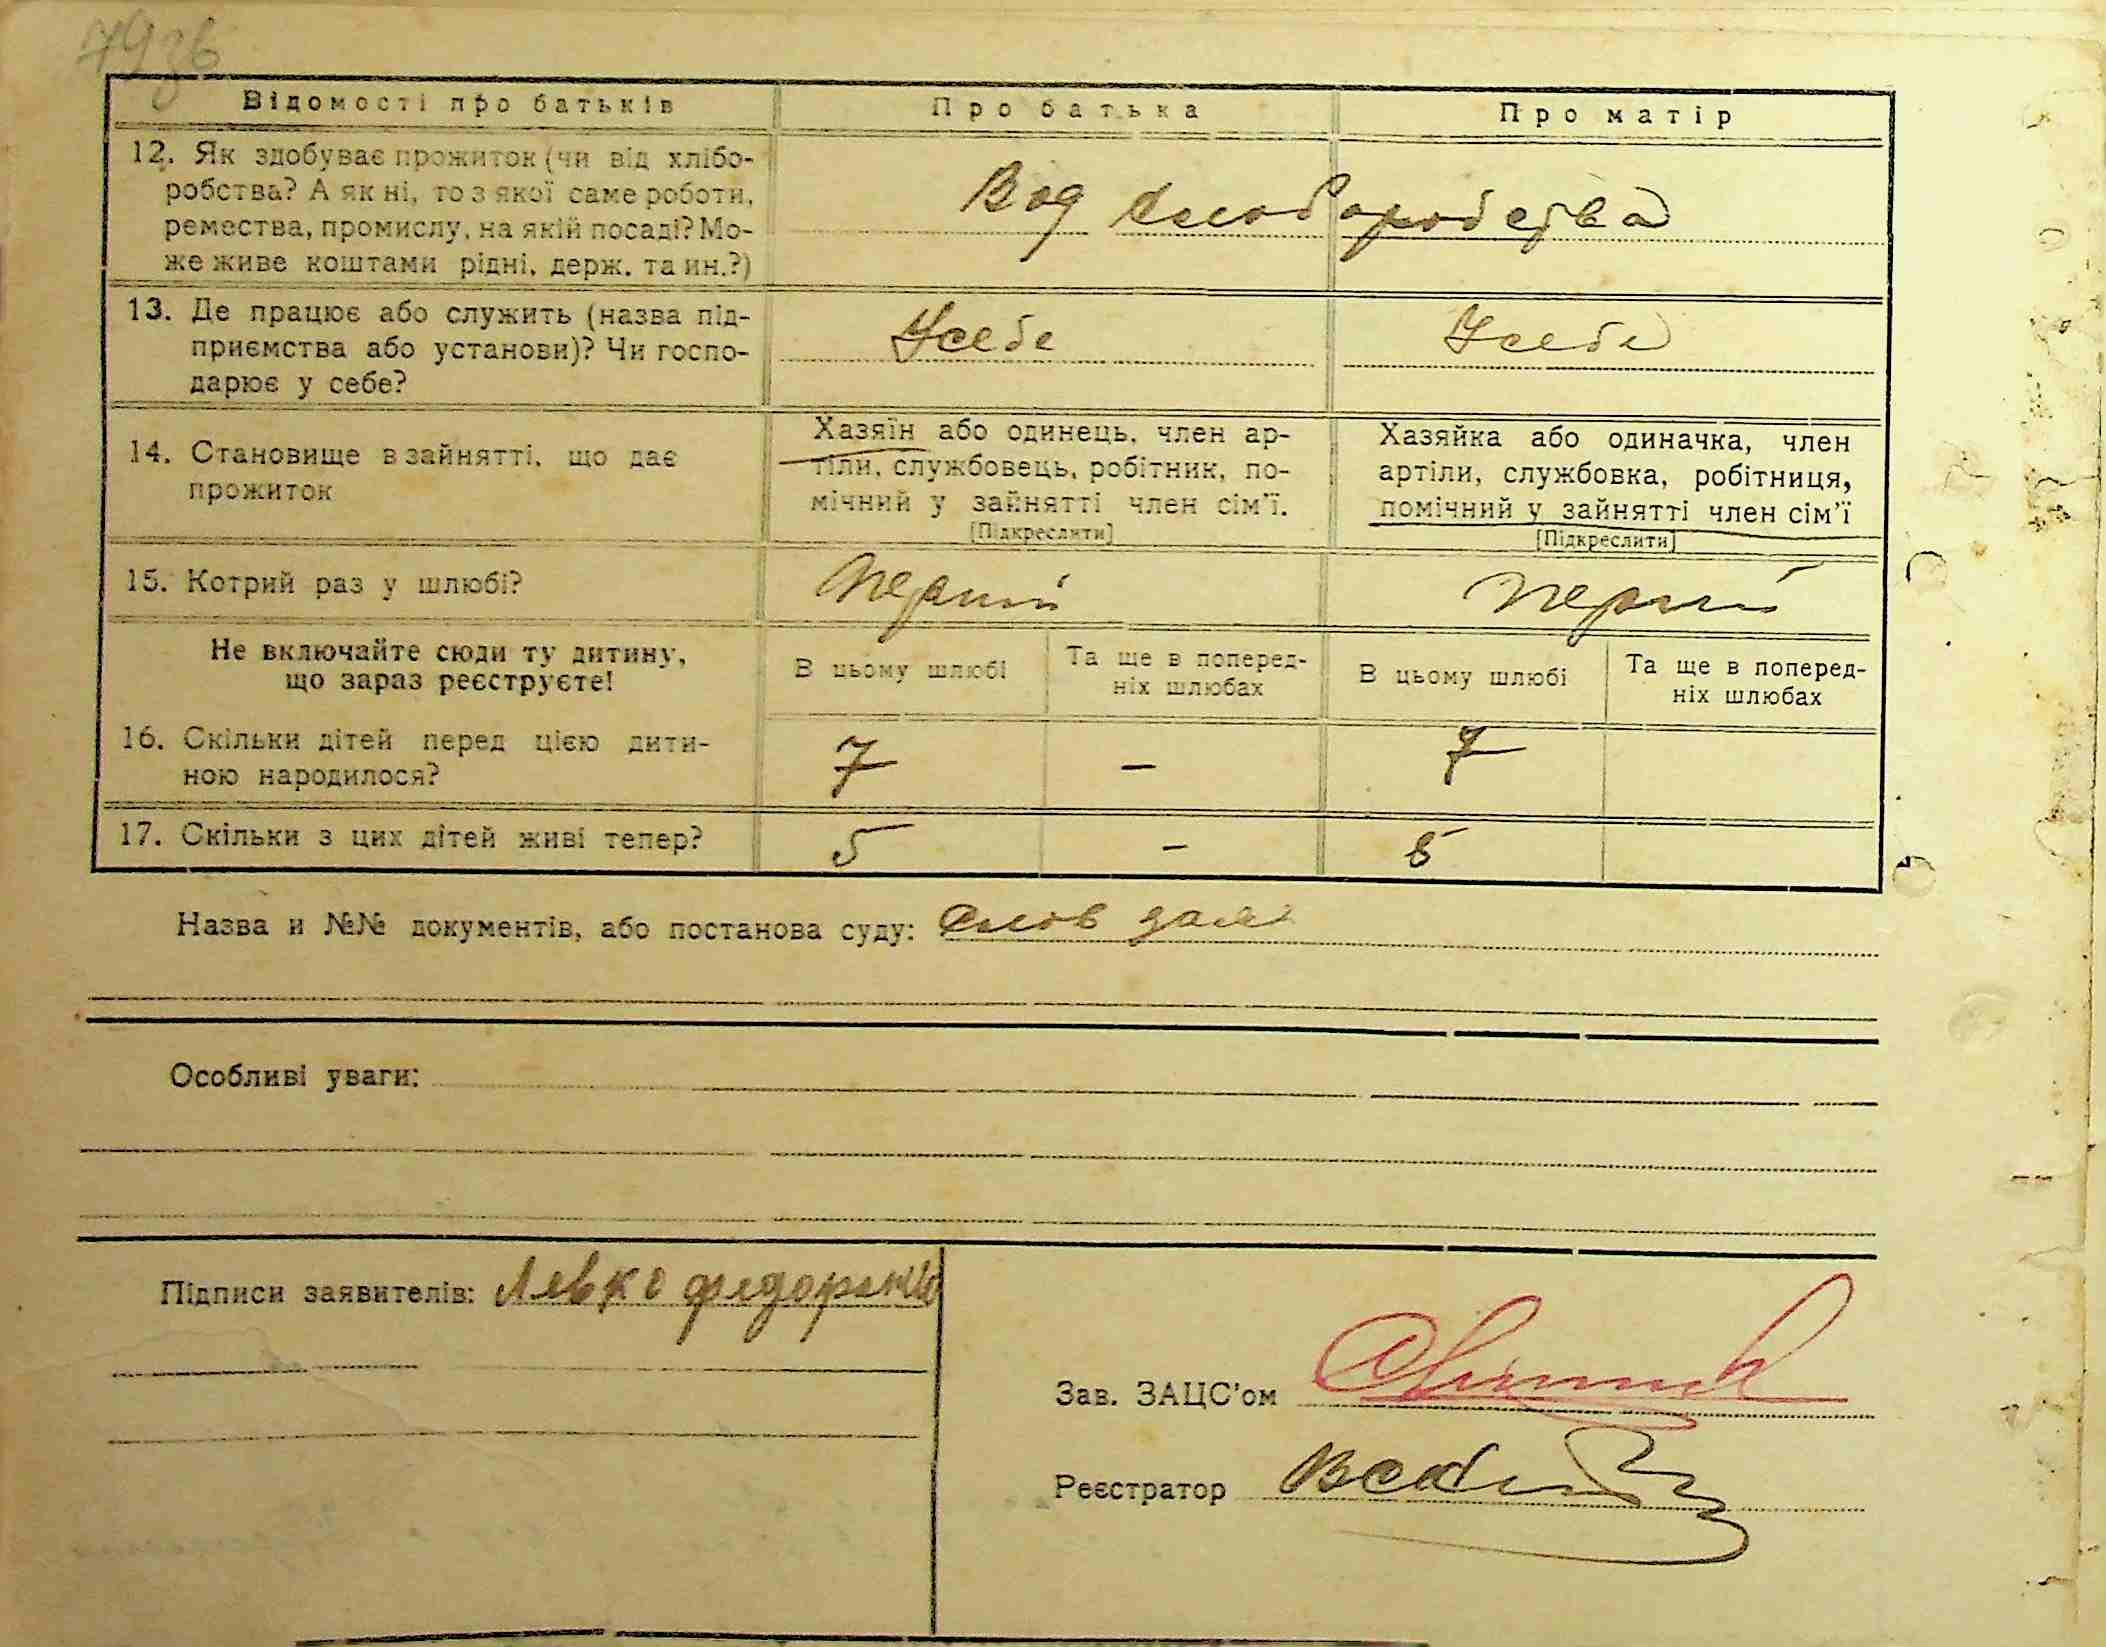 79зв
Відомості про батьків
Про батька
Про матір
12. Як здобуває прожиток (чи від хлібо-
робства? А як ні, то з якої саме роботи,
ремества, промислу, на якій посаді? Мо-
же живе коштами рідні, держ. та ин.?)
Вод хлиборобства
13. Де працює або служить (назва під-
приємства або установи)? Чи госпо-
дарює у себе?
Усебе
Усебе
14. Становище в зайнятті, що дає
прожиток
Хазяїн або одинець, член ар-
тіли, службовець, робітник, по-
мічний у зайнятті член сім'ї.
[Підкреслити]
Хазяйка або одиначка, член
артіли, службовка, робітниця,
помічний у зайнятті член сім'ї
[Підкреслити]
15. Котрий раз у шлюбі?
Перший
Перший
Не включайте сюди ту дитину,
що зараз реєструєте!
В цьому шлюбі
Та ще в поперед-
ніх шлюбах
В цьому шлюбі
Та ще в поперед-
ніх шлюбах
16. Скільки дітей перед цією дити-
ною народилося?
7
–
7
17. Скільки з цих дітей живі тепер?
5
–
5
Назва и №№ документів, або постанова суду: Слов заяв
Особливі уваги:
Підписи заявителів: Левко
Зав. ЗАЦС'ом
Реєстратор